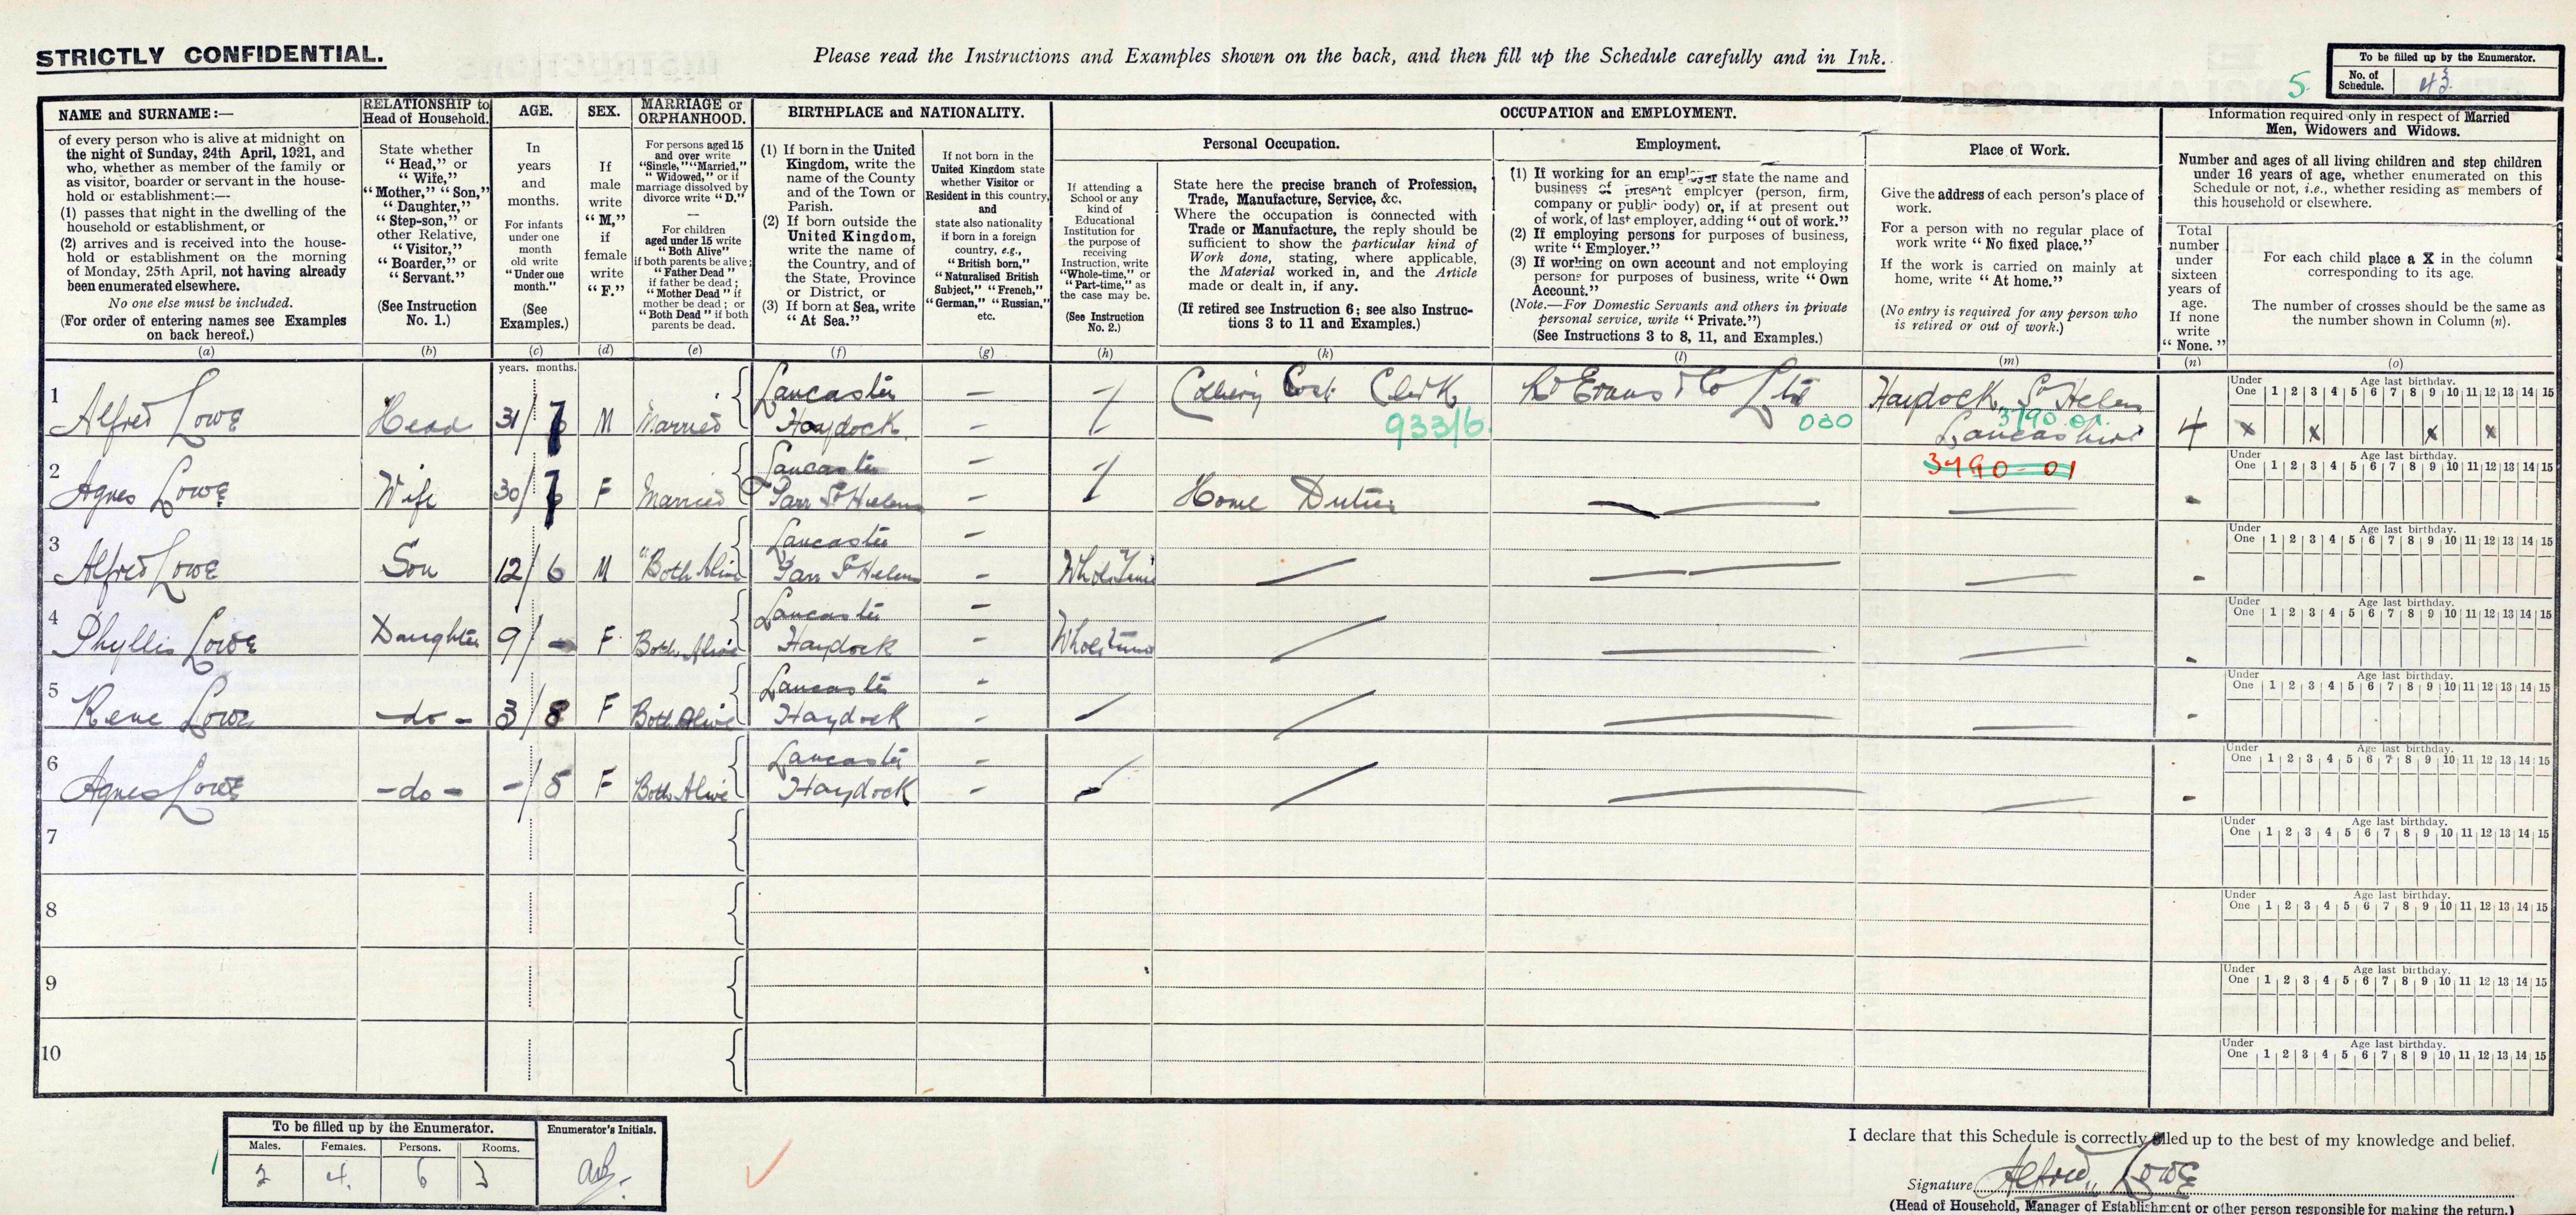 STRICTLY CONFIDENTIAL.
Please read the Instructions and Examples shown on the back, and then fill up the Schedule carefully and in Ink.
5.
To be filled up by the Enumerator.
No. of Schedule. 43
NAME and SURNAME:—
of every person who is alive at midnight on
the night of Sunday, 24th April, 1921, and
who, whether as member of the family or
as visitor, boarder or servant in the house-
hold or establishment:—
(1) passes that night in the dwelling of the
household or establishment, or
(2) arrives and is received into the house-
hold or establishment on the morning
of Monday, 25th April, not having already
been enumerated elsewhere.
No one else must be included.
(For order of entering names see Examples
on back hereof.)
(a)
RELATIONSHIP to
Head of Household.
State whether
"Head," or
"Wife,"
"Mother," "Son,"
"Daughter,"
"Step-son," or
other Relative,
"Visitor,"
"Boarder," or
"Servant."
(See Instruction
No. 1.)
(b)
AGE.
In
years
and
months.
For infants
under one
month
old write
"Under one
month."
(See
Examples.)
(c)
SEX.
If
male
write
"M,"
if
female
write
"F."
(d)
MARRIAGE or
ORPHANHOOD.
For persons aged 15
and over write
"Single," "Married,"
"Widowed," or if
marriage dissolved by
divorce write "D."
—
For children
aged under 15 write
"Both Alive"
if both parents be alive;
"Father Dead"
if father be dead;
"Mother Dead" if
mother be dead; or
"Both Dead" if both
parents be dead.
(e)
BIRTHPLACE and NATIONALITY.
(1) If born in the United
Kingdom, write the
name of the County
and of the Town or
Parish.
(2) If born outside the
United Kingdom,
write the name of
the Country, and of
the State, Province
or District, or
(3) If born at Sea, write
"At Sea."
(f)
If not born in the
United Kingdom state
whether Visitor or
Resident in this country,
and
state also nationality
if born in a foreign
country, e.g.,
"British born,"
"Naturalised British
Subject," "French,"
"German," "Russian,"
etc.
(g)
OCCUPATION and EMPLOYMENT.
If attending a
School or any
kind of
Educational
Institution for
the purpose of
receiving
Instruction, write
"Whole-time," or
"Part-time," as
the case may be.
(See Instruction
No. 2.)
(h)
Personal Occupation.
State here the precise branch of Profession,
Trade, Manufacture, Service, &c.
Where the occupation is connected with
Trade or Manufacture, the reply should be
sufficient to show the particular kind of
Work done, stating, where applicable,
the Material worked in, and the Article
made or dealt in, if any.
(If retired see Instruction 6; see also Instruc-
tions 3 to 11 and Examples.)
(k)
Employment.
(1) If working for an employer state the name and
business of present employer (person, firm,
company or public body) or, if at present out
of work, of last employer, adding "out of work."
(2) If employing persons for purposes of business,
write "Employer."
(3) If working on own account and not employing
persons for purposes of business, write "Own
Account."
(Note.—For Domestic Servants and others in private
personal service, write "Private.")
(See Instructions 3 to 8, 11, and Examples.)
(l)
Place of Work.
Give the address of each person's place of
work.
For a person with no regular place of
work write "No fixed place."
If the work is carried on mainly at
home, write "At home."
(No entry is required for any person who
is retired or out of work.)
(m)
Information required only in respect of Married
Men, Widowers and Widows.
Number and ages of all living children and step children
under 16 years of age, whether enumerated on this
Schedule or not, i.e., whether residing as members of
this household or elsewhere.
Total
number
under
sixteen
years of
age.
If none
write
"None."
(n)
For each child place a X in the column
corresponding to its age.
The number of crosses should be the same as
the number shown in Column (n).
(o)
years. months.
1 Alfred Lowe Head 31/7 M Married Lancaster Haydock Colliery Cost Clerk 933/6. Evans & Co Ltd 030 Haydock, St Helens 3190.01. Lancashire 4 x x x x
Under One 1 2 3 4 5 6 7 8 9 10 11 12 13 14 15 Age last birthday.
2 Agnes Lowe Wife 30/7 F Married Lancaster Parr St Helens Home Duties 3190-01
Under One 1 2 3 4 5 6 7 8 9 10 11 12 13 14 15 Age last birthday.
3 Alfred Lowe Son 12/6 M "Both Alive Lancaster Parr St Helens Whole Time
Under One 1 2 3 4 5 6 7 8 9 10 11 12 13 14 15 Age last birthday.
4 Phyllis Lowe Daughter 9/- F Both Alive Lancaster Haydock Whole time
Under One 1 2 3 4 5 6 7 8 9 10 11 12 13 14 15 Age last birthday.
5 Rene Lowe -do- 3/8 F Both Alive Lancaster Haydock
Under One 1 2 3 4 5 6 7 8 9 10 11 12 13 14 15 Age last birthday.
6 Agnes Lowe -do- -/5 F Both Alive Lancaster Haydock
Under One 1 2 3 4 5 6 7 8 9 10 11 12 13 14 15 Age last birthday.
7
Under One 1 2 3 4 5 6 7 8 9 10 11 12 13 14 15 Age last birthday.
8
Under One 1 2 3 4 5 6 7 8 9 10 11 12 13 14 15 Age last birthday.
9
Under One 1 2 3 4 5 6 7 8 9 10 11 12 13 14 15 Age last birthday.
10
Under One 1 2 3 4 5 6 7 8 9 10 11 12 13 14 15 Age last birthday.
To be filled up by the Enumerator.
Males. Females. Persons. Rooms.
2 4. 6
Enumerator's Initials.
I declare that this Schedule is correctly filled up to the best of my knowledge and belief.
Signature Alfred Lowe
(Head of Household, Manager of Establishment or other person responsible for making the return.)